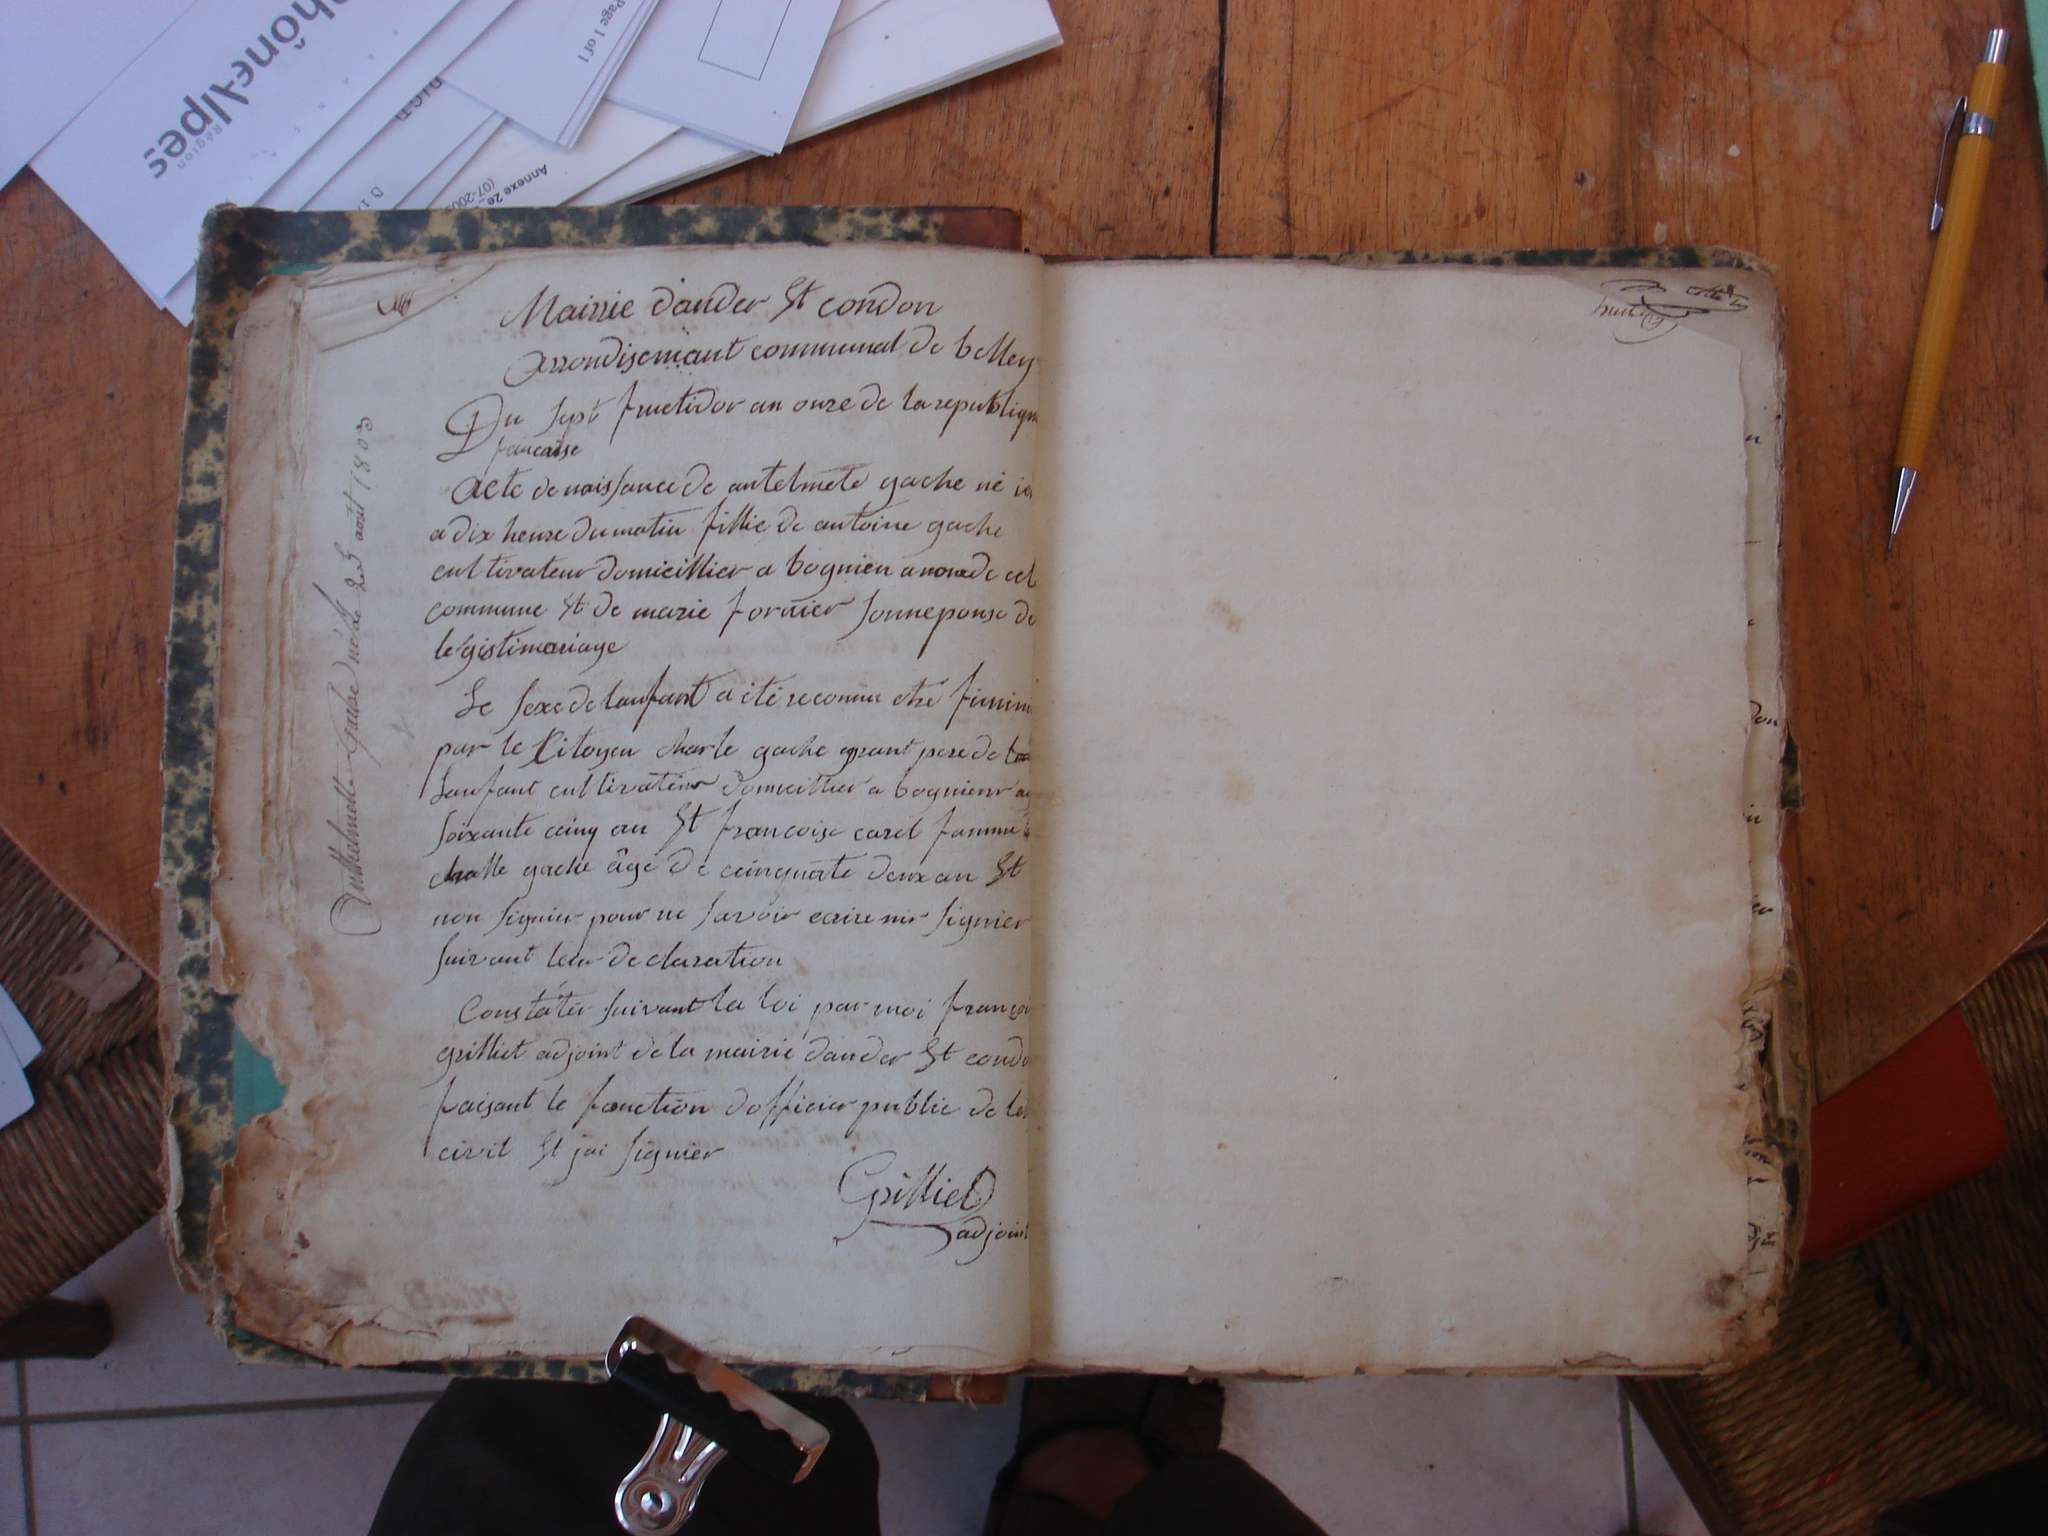 Rhône-Alpes
Région
Page 1 of 1
Annexe 2e
Mairie dander St condon
Arrondisemant communal de belley
Du sept fructidor an onze de la republiqu
francaise
Acte de naissance de antelmete gache né
a dix heure du matin fillie de antoine gache
cultivateur domicillier a bognieu
commune St de marie fornier sonneponse de
legistimariage
Le sexe de lanfant a ité reconnu etre fimini
par le Citoyen charle gache grant pere de
lanfant cultivateur domicillier a bognieur
soixante cinq an St francoise carel famme
challe gache âgé de cinquate deux an St
non signier pour ne savoir ecrire nir signier
suivant leur declaration
Constater suivant la loi par moi françoi
grilliet adjoint de la mairie dander St condo
faisant le fonction dofficier public de let
civil St jai signier
Grilliet
adjoint
Anthelmette Gache née le 25 aout 1803